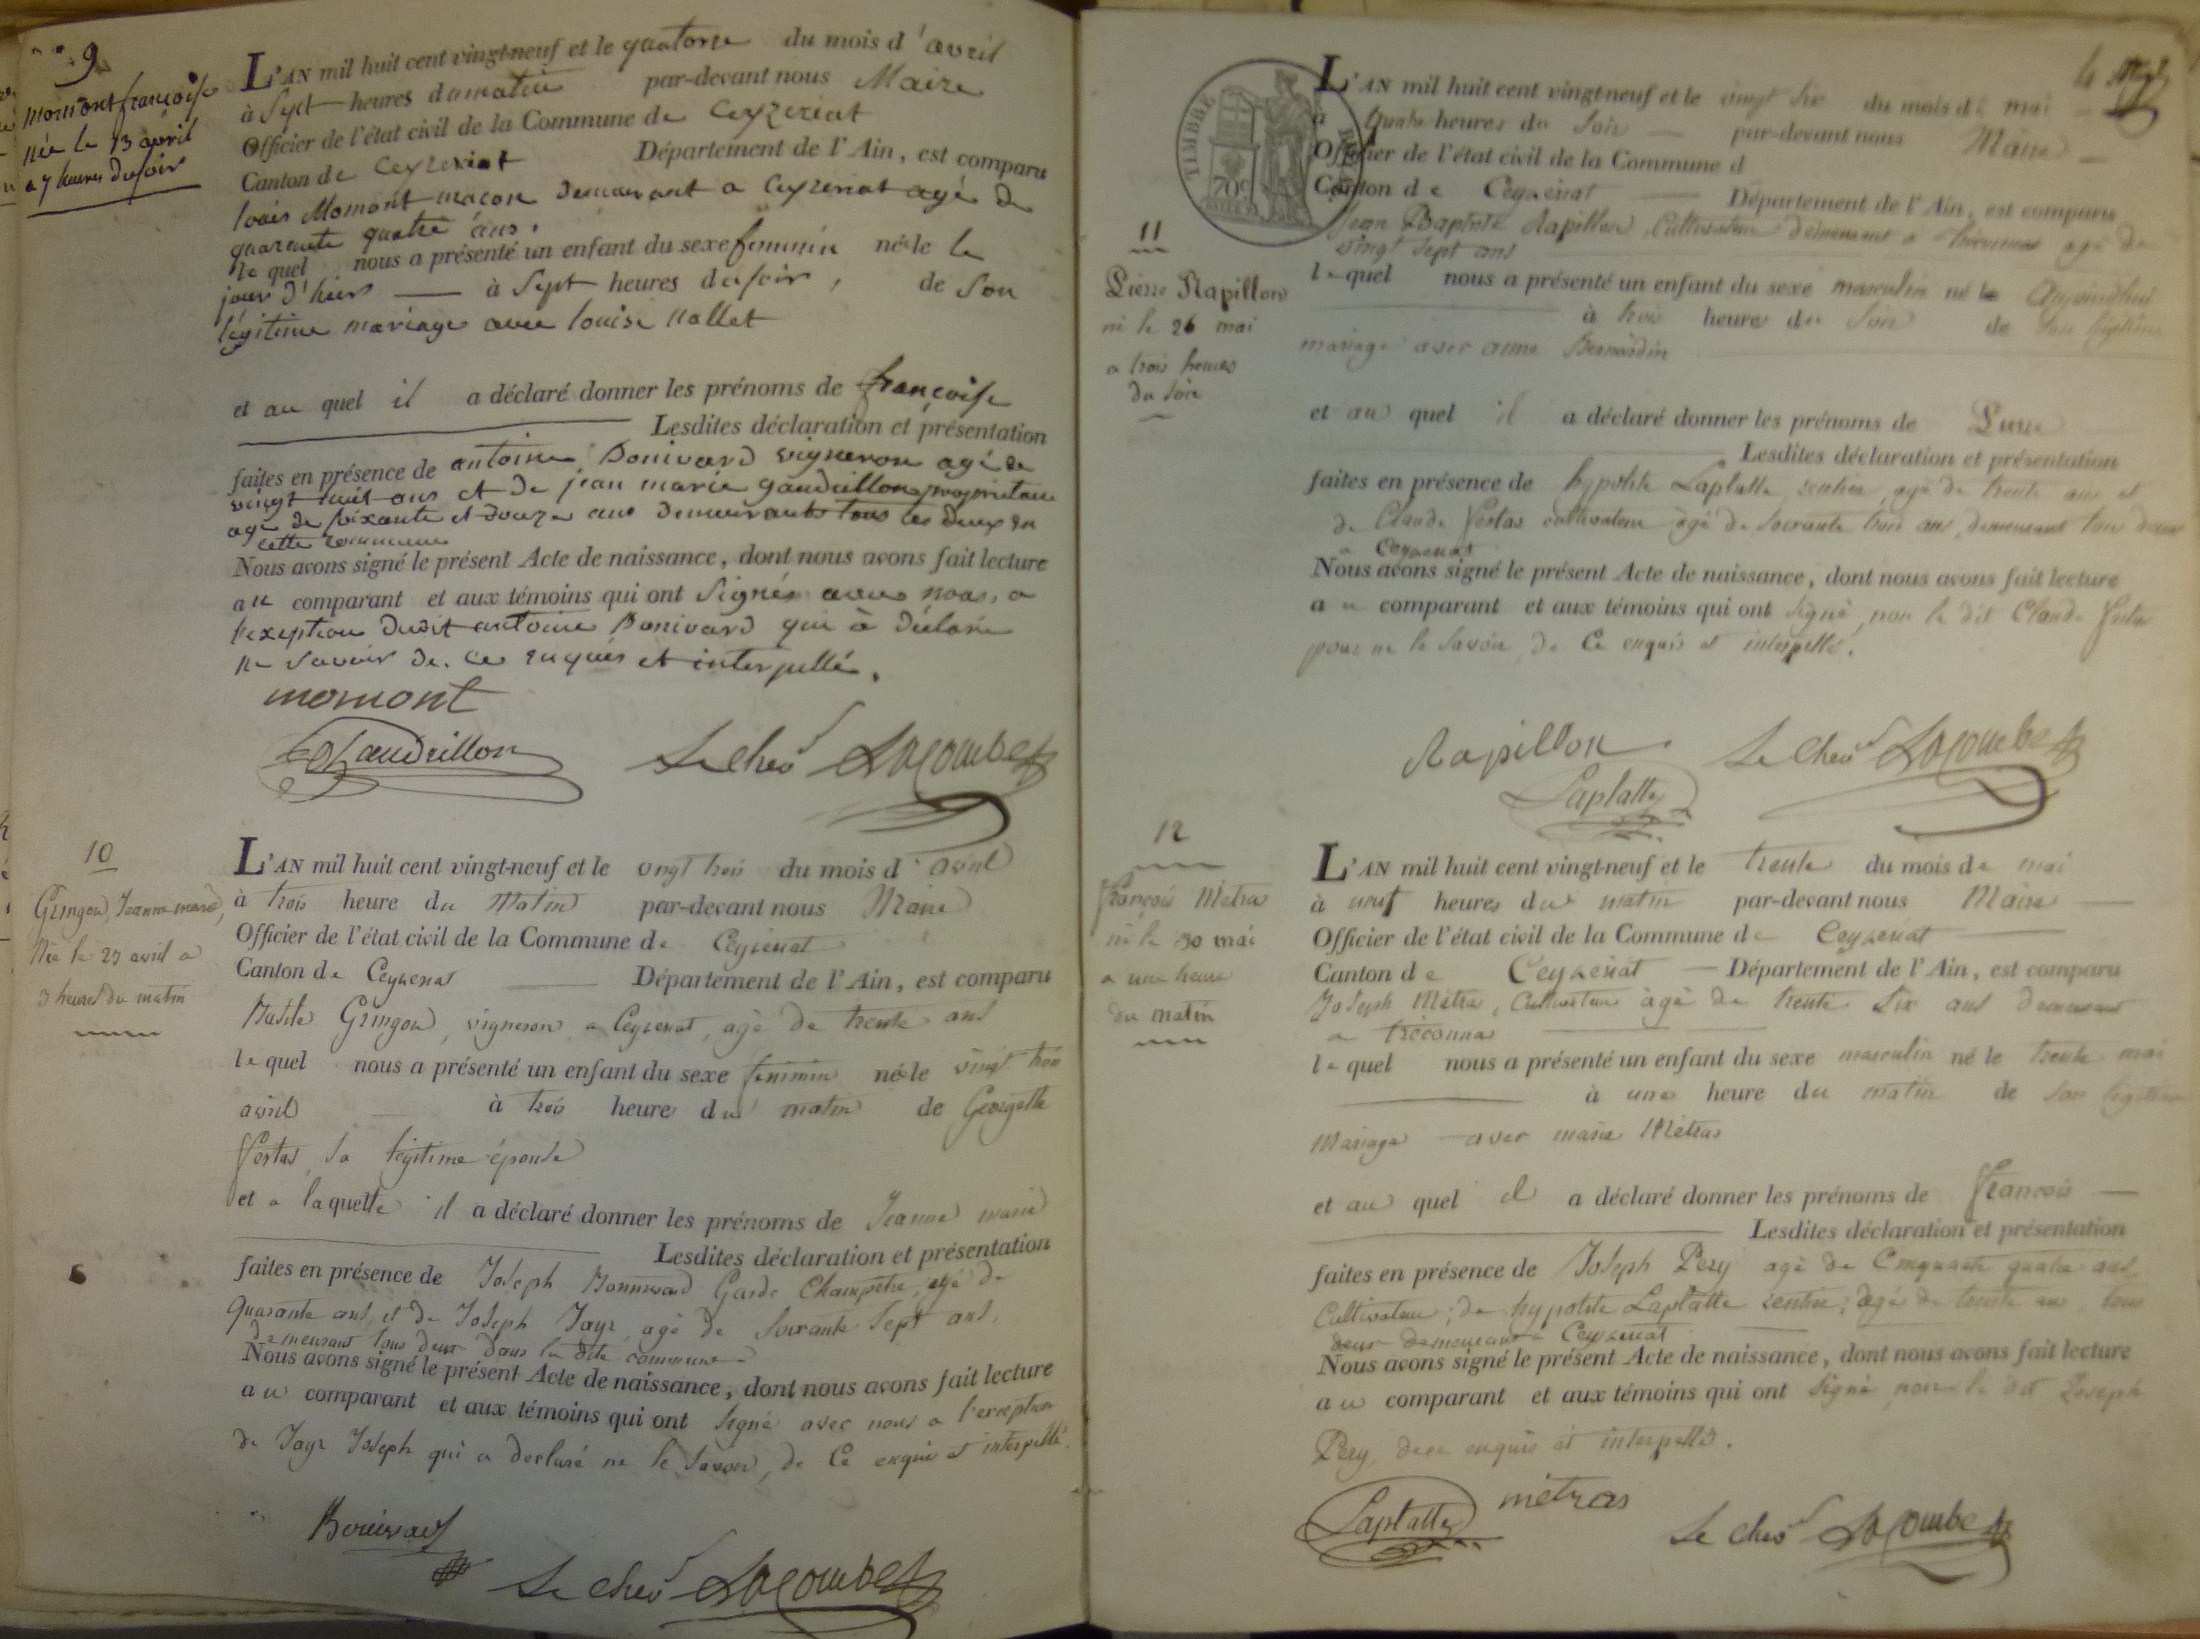 9
momont françoise
née le 13 avril
a 7 heures du soir
L'AN mil huit cent vingt-neuf et le quatorze du mois d'avril
à Sept heures du matin par-devant nous Maire
Officier de l'état civil de la Commune de Ceyzeriat
Canton de Ceyzeriat Département de l'Ain, est comparu
louis Momont macon demeurant a Ceyzeriat agé de
quarante quatre ans.
le quel nous a présenté un enfant du sexe feminin née le
jour d'hier à Sept heures du soir, de Son
légitime mariage avec louise Nallet
et au quel il a déclaré donner les prénoms de françoise
Lesdites déclaration et présentation
faites en présence de antoine Bonivard vigneron agé de
vingt huit ans et de jean marie gaudrillon propriétaire
agé de soixante et douze ans demeurants tous les deux en
cette commune
Nous avons signé le présent Acte de naissance, dont nous avons fait lecture
au comparant et aux témoins qui ont Signés avec nous, a
l'exeption dudit antoine Bonivard qui à déclaré
ne Savoir de ce enquis et interpellé.
momont
Gaudrillon Le Chev Lacombe
10
Gringoz, Jeanne marie,
Née le 23 avril a
3 heures du matin
L'AN mil huit cent vingt-neuf et le vingt trois du mois d'avril
à trois heure du Matin par-devant nous Maire
Officier de l'état civil de la Commune de Ceyzeriat
Canton de Ceyzeriat Département de l'Ain, est comparu
Gringoz, vigneron a Ceyzeriat, agé de trente ans
le quel nous a présenté un enfant du sexe féminin née le vingt trois
avril à trois heure du matin de Georgette
Vertas sa légitime épouse
et a laquelle il a déclaré donner les prénoms de Jeanne marie
Lesdites déclaration et présentation
faites en présence de Joseph Bonnivard Garde Champêtre, agé de
Quarante ans, et de Joseph Jayr agé de Soixante Sept ans,
demeurant tous deux dans la dite commune
Nous avons signé le présent Acte de naissance, dont nous avons fait lecture
au comparant et aux témoins qui ont Signé avec nous a l'exception
de Jayr Joseph qui a declaré ne le Savoir, de Ce enquis et interpellé.
Bonivard
Le Chev Lacombe
4
TIMBRE ROYAL
70c
11
Pierre Rapillon
né le 26 mai
a trois heures
du Soir
L'AN mil huit cent vingt-neuf et le vingt Six du mois de mai
à quatre heures du Soir par-devant nous Maire
Officier de l'état civil de la Commune d
Canton de Ceyzeriat Département de l'Ain, est comparu
Jean Baptiste Rapillon, Cultivateur demeurant a agé de
vingt Sept ans
le quel nous a présenté un enfant du sexe masculin né Aujourdhui
à trois heures du Soir de Son légitime
mariage avec anne Bernardin
et au quel il a déclaré donner les prénoms de Pierre
Lesdites déclaration et présentation
faites en présence de hypolite Laplatte, rentier, agé de trente ans et
de Claude Vertas cultivateur agé de Soixante trois ans, demeurant tous deux
a Ceyzeriat
Nous avons signé le présent Acte de naissance, dont nous avons fait lecture
au comparant et aux témoins qui ont Signé, non le dit Claude Vertas
pour ne le Savoir, de Ce enquis et interpellé.
Rapillon Le Chev Lacombe
Laplatte
12
françois Métras
né le 30 mai
a une heure
du matin
L'AN mil huit cent vingt-neuf et le trente du mois de mai
à neuf heures du matin par-devant nous Maire
Officier de l'état civil de la Commune de Ceyzeriat
Canton de Ceyzeriat Département de l'Ain, est comparu
Joseph Métras, Cultivateur àgé de trente Six ans demeurant
a tréconnas
le quel nous a présenté un enfant du sexe masculin né le trente mai
à une heure du matin de Son légitime
Mariage avec marie Métras
et au quel il a déclaré donner les prénoms de François
Lesdites déclaration et présentation
faites en présence de Joseph Péry agé de Cinquante quatre ans
Cultivateur; de hypolite Laplatte rentier; àgé de trente ans tous
deux demeurant a Ceyzeriat
Nous avons signé le présent Acte de naissance, dont nous avons fait lecture
au comparant et aux témoins qui ont Signé non le dit Joseph
Péry, de ce enquis et interpellé.
Laplatte métras Le Chev Lacombe